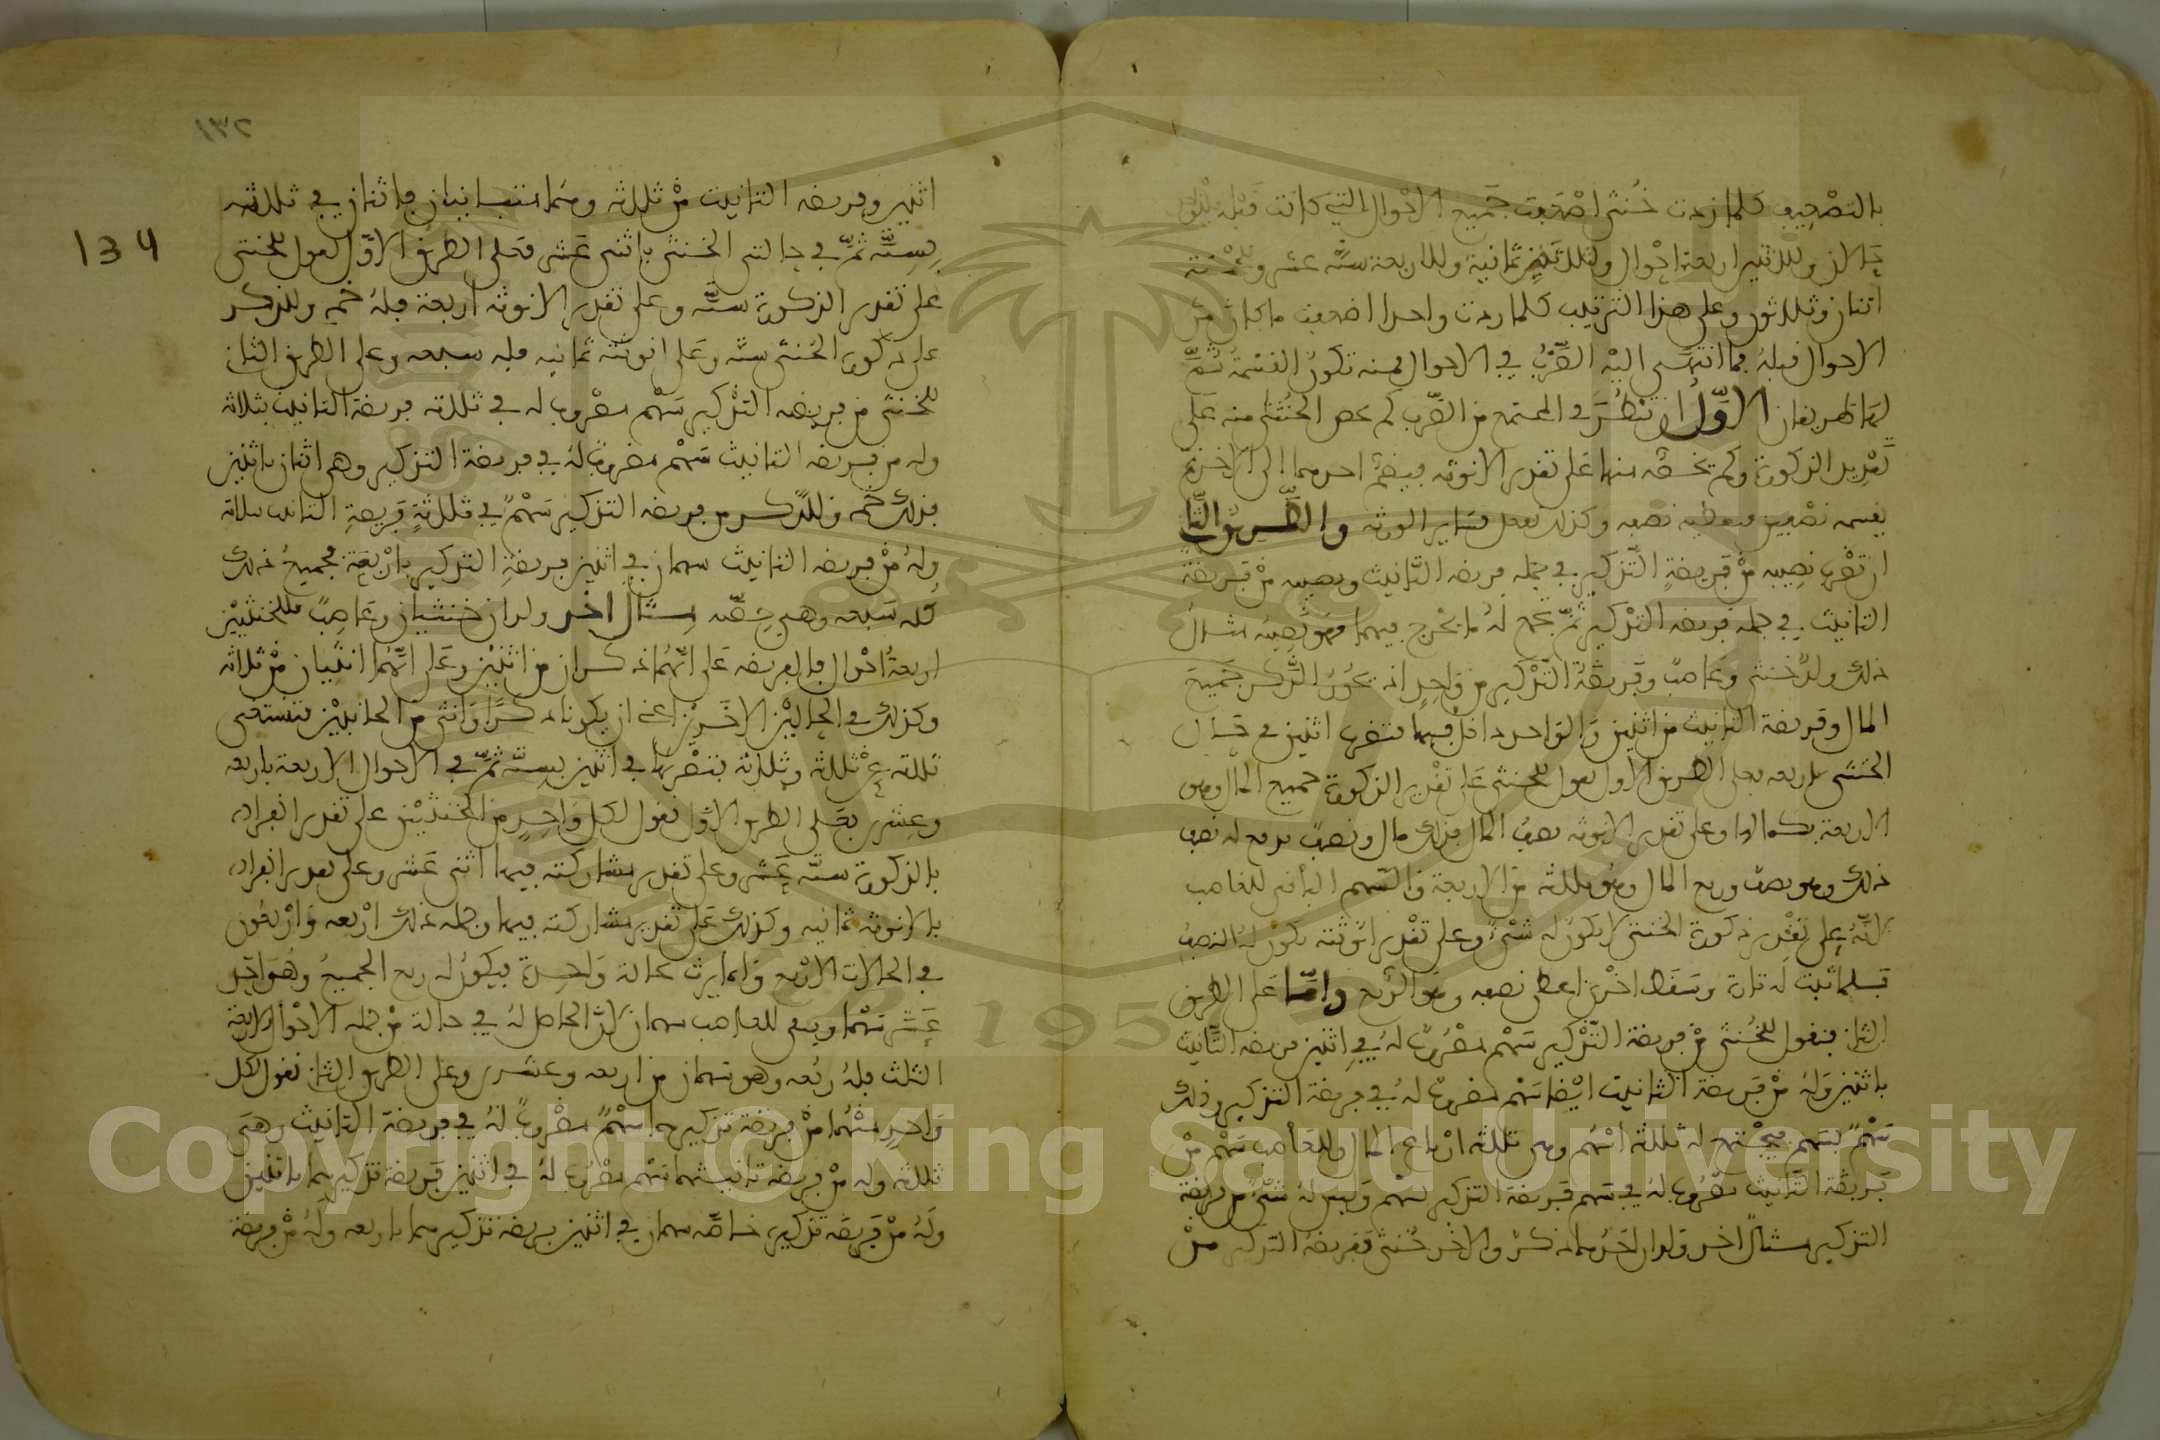 بالتضعيف كلما زدت خنثى اضعفت جميع الاحوال التي كانت قبله فللواحد
حالان وللاثنين اربعة احوال وللثلاثة ثمانية وللاربعة ستة عشر وللخمسة
اثنان وثلاثون وعلى هذا الترتيب كلما زدت واحدا اضعفت ما كان من
الاحوال قبله فما انتهى اليه الضرب في الاحوال فمنه تكون القسمة ثم
لها طريقان الاول ان تنظر في المجتمع من الضرب كم يخص الخنثى منه على
تقدير الذكورة وكم يخصه منها على تقدير الانوثة فيضم احدهما إلى الاخر
يقسمه نصفين فيعطيه نصفه وكذلك يفعل فسائر الورثة والطريق الثاني
ان تضرب نصيبه من فريضة التذكير في جملة فريضة التانيث ونصيبه من فريضة
التانيث في جملة فريضة التذكير ثم تجمع له ما يخرج فيهما فهو نصيبه مثال
ذلك ولد خنثى وعاصب وفريضة التذكير من واحد اذ يحوز الذكر جميع
المال وفريضة التانيث من اثنين والواحد داخل فيهما فتضرب اثنين في حال
الخنثى باربعة فعلى الطريق الاول نقول للخنثى على تقدير الذكورة جميع المال وهو
الاربعة بكمالها وعلى تقدير الانوثة نصف المال فذلك مال ونصف يدفع له نصف
ذلك وهو نصف وربع المال وهو ثلاثة من الاربعة والسهم الباقي للعاصب
لانه على تقدير ذكورة الخنثى لا يكون له شيء وعلى تقدير انوثته يكون له النصف
فلما ثبت له تارة وسقط اخرى اعطي نصفه وهو الربع واما على الطريق
الثاني فنقول للخنثى من فريضة التذكير سهم مضروب له في اثنين فريضة التانيث
باثنين وله من فريضة التانيث ايضا سهم مضروب له في فريضة التذكير وذلك
سهم بسهم فيجتمع له ثلاثة اسهم وهي ثلاثة ارباع المال وللعاصب سهم من
فريضة التانيث مضروب له في سهم فريضة التذكير بسهم وليس له شيء من فريضة
التذكير مثال اخر ولدان احدهما ذكر والاخر خنثى ففريضة التذكير من
١٣٢
134
اثنين وفريضة التانيث من ثلاثة وهما متباينان فاثنان في ثلاثة
بستة ثم في حالتي الخنثى باثنى عشر فعلى الطريق الاول نقول للخنثى
على تقدير الذكورة ستة وعلى تقدير الانوثة اربعة فله خمسة وللذكر
على ذكورة الخنثى ستة وعلى انوثته ثمانية فله سبعة وعلى الطريق الثاني
للخنثى من فريضة التذكير سهم مضروب له في ثلاثة فريضة التانيث بثلاثة
وله من فريضة التانيث سهم مضروب له في فريضة التذكير وهي اثنان باثنين
فذلك خمسة وللذكر من فريضة التذكير سهم في ثلاثة فريضة التانيث بثلاثة
وله من فريضة التانيث سهمان في اثنين فريضة التذكير باربعة فجميع ذلك
كله سبعة وهي حصته مثال اخر ولدان خنثيان وعاصب فللخنثيين
اربعة احوال فالفريضة على انهما ذكران من اثنين وعلى انهما انثيان من ثلاثة
وكذلك في الحالين الاخرين اعني ان يكونا ذكرا وانثى من الجانبين فتستغني
ثلاثة عن ثلاثة وثلاثة بتضربها في اثنين بستة ثم في الاحوال الاربعة باربعة
وعشرين فعلى الطريق الاول نقول لكل واحد من الخنثيين على تقدير انفراده
بالذكورة ستة عشر وعلى تقدير مشاركته فيها اثنى عشر وعلى تقدير انفراده
بالانوثة ثمانية وكذلك على تقدير مشاركته فيها وجملة ذلك اربعة واربعون
في الحالات الاربع وانما يرث بحالة واحدة فيكون له ربع الجميع وهو احد
عشر سهما ويبقى للعاصب سهمان لان الحاصل له في حالة من جملة الاحوال الاربعة
الثلث فله ربعه وهو سهمان من اربعة وعشرين وعلى الطريق الثاني نقول لكل
واحد منهما من فريضة تذكيرهما سهم مضروب له في فريضة التانيث وهي
ثلاثة وله من فريضة تانيثهما سهم مضروب له في اثنين فريضة تذكيرهما باثنين
وله من فريضة تذكيره خاصة سهمان في اثنين فريضة تذكيرهما باربعة وله من فريضة
Copyright © King Saud University
1957